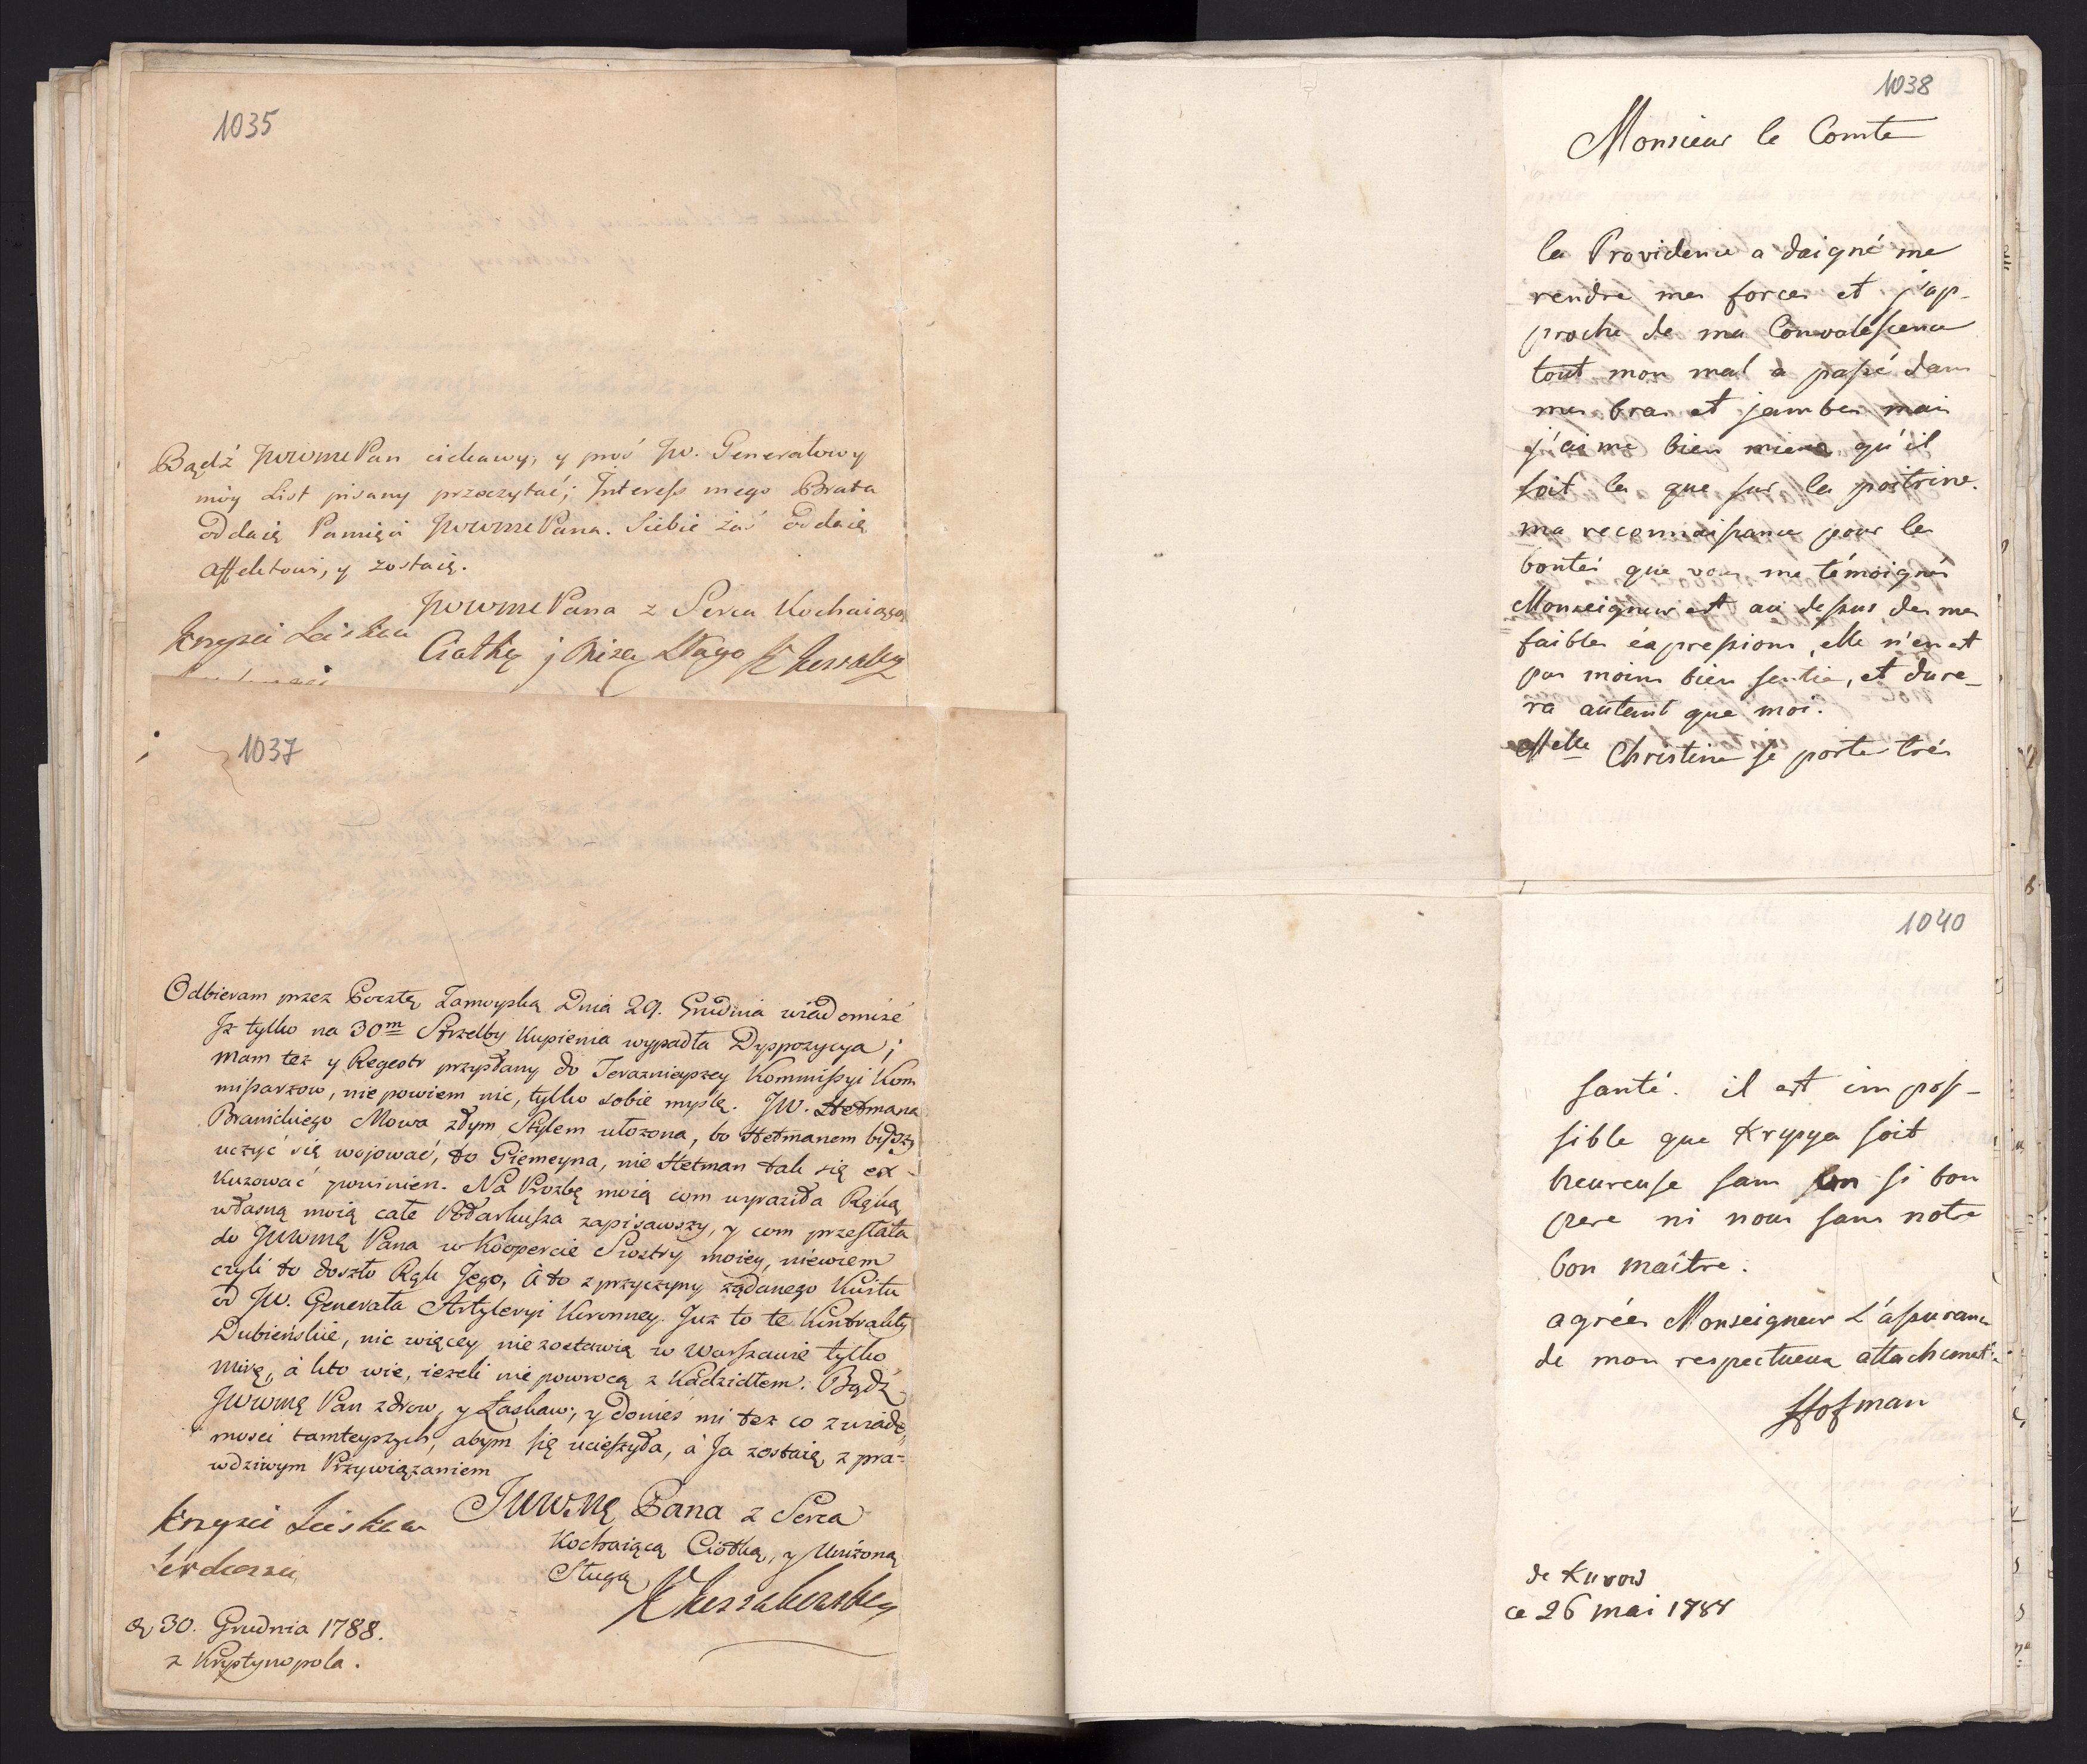 1035
Bądź JWWMe Pan ciekawy, y proś Jw. Generałowy
móy List pisany przeczytać; Interess mego Brata
oddaię Pamięci JWWMe Pana. Siebie zaś oddaię
affektowi, y zostaię.
JWWMe Pana z Serca Kochaiącą
Ciotką j Niżą Sługą
1037
Odbieram przez Pocztę Zamoyską Dnia 29. Grudnia wiadomość
Iz tylko na 30m Strzelby Kupienia wypadła Dyspozycya;
mam tez y Regestr przysłany do Teraznieyszey Kommissyi Kom
missarzow, nie powiem nic, tylko sobie myślę. JW. Hetmana
Branickiego Mowa złym Stylem ułozona, bo Hetmanem bydszy
uczyć się wojować, to Giemeyna, nie Hetman tak się ex-
kuzować powinien. Na Prozbę moią com wyraziła Ręką
własną moią całe Pół arkusza zapisawszy, y com przesłała
do JWWMę Pana w Kopercie Siostry moiey, niewiem
czyli to doszło Rąk Jego, à to z przyczyny żądanego Kwitu
od JW. Generała Artyleryi Koronney. Juz to te Kontrakty
Dubieńskie, nic więcey nie zostawią w Warszawie tylko
Mirę, à kto wie, iezeli nie powrocą z Kadzidłem. Bądz
JWWMę Pan zdrow, y Łaskaw, y donieś mi tez co z wiado„
mosci tamteyszych, abym się ucieszyła, à Ja zostaię z pra=
wdziwym Przywiązaniem
JWWMę Pana z Serca
Kochaiącą Ciotką, y Uniżoną
Sługą
30. Grudnia 1788.
z Krystynopola.
1038
Monsieur le Comte
la Providence a daigné me
rendre mes forces et j'ap-
proche de ma Convalescence
tout mon mal a passé dans
mes bras et jambes mais
j'aime bien mieux qu'il
soit la que sur la poitrine.
ma reconnaissance pour les
bontés que vous me témoignés
Monseigneur est au dessus de mes
faibles expressions, elle n'en est
pas moins bien sentie, et dure-
ra autant que moi.
Melle Christine se porte très
1040
santé. il est impos-
sible que Krysya soit
heureuse sans un si bon
pere ni nous sans notre
bon maître.
agrées Monseigneur L'assurance
de mon respectueux attachement.
Hofman
de Kurow
ce 26 mai 1788